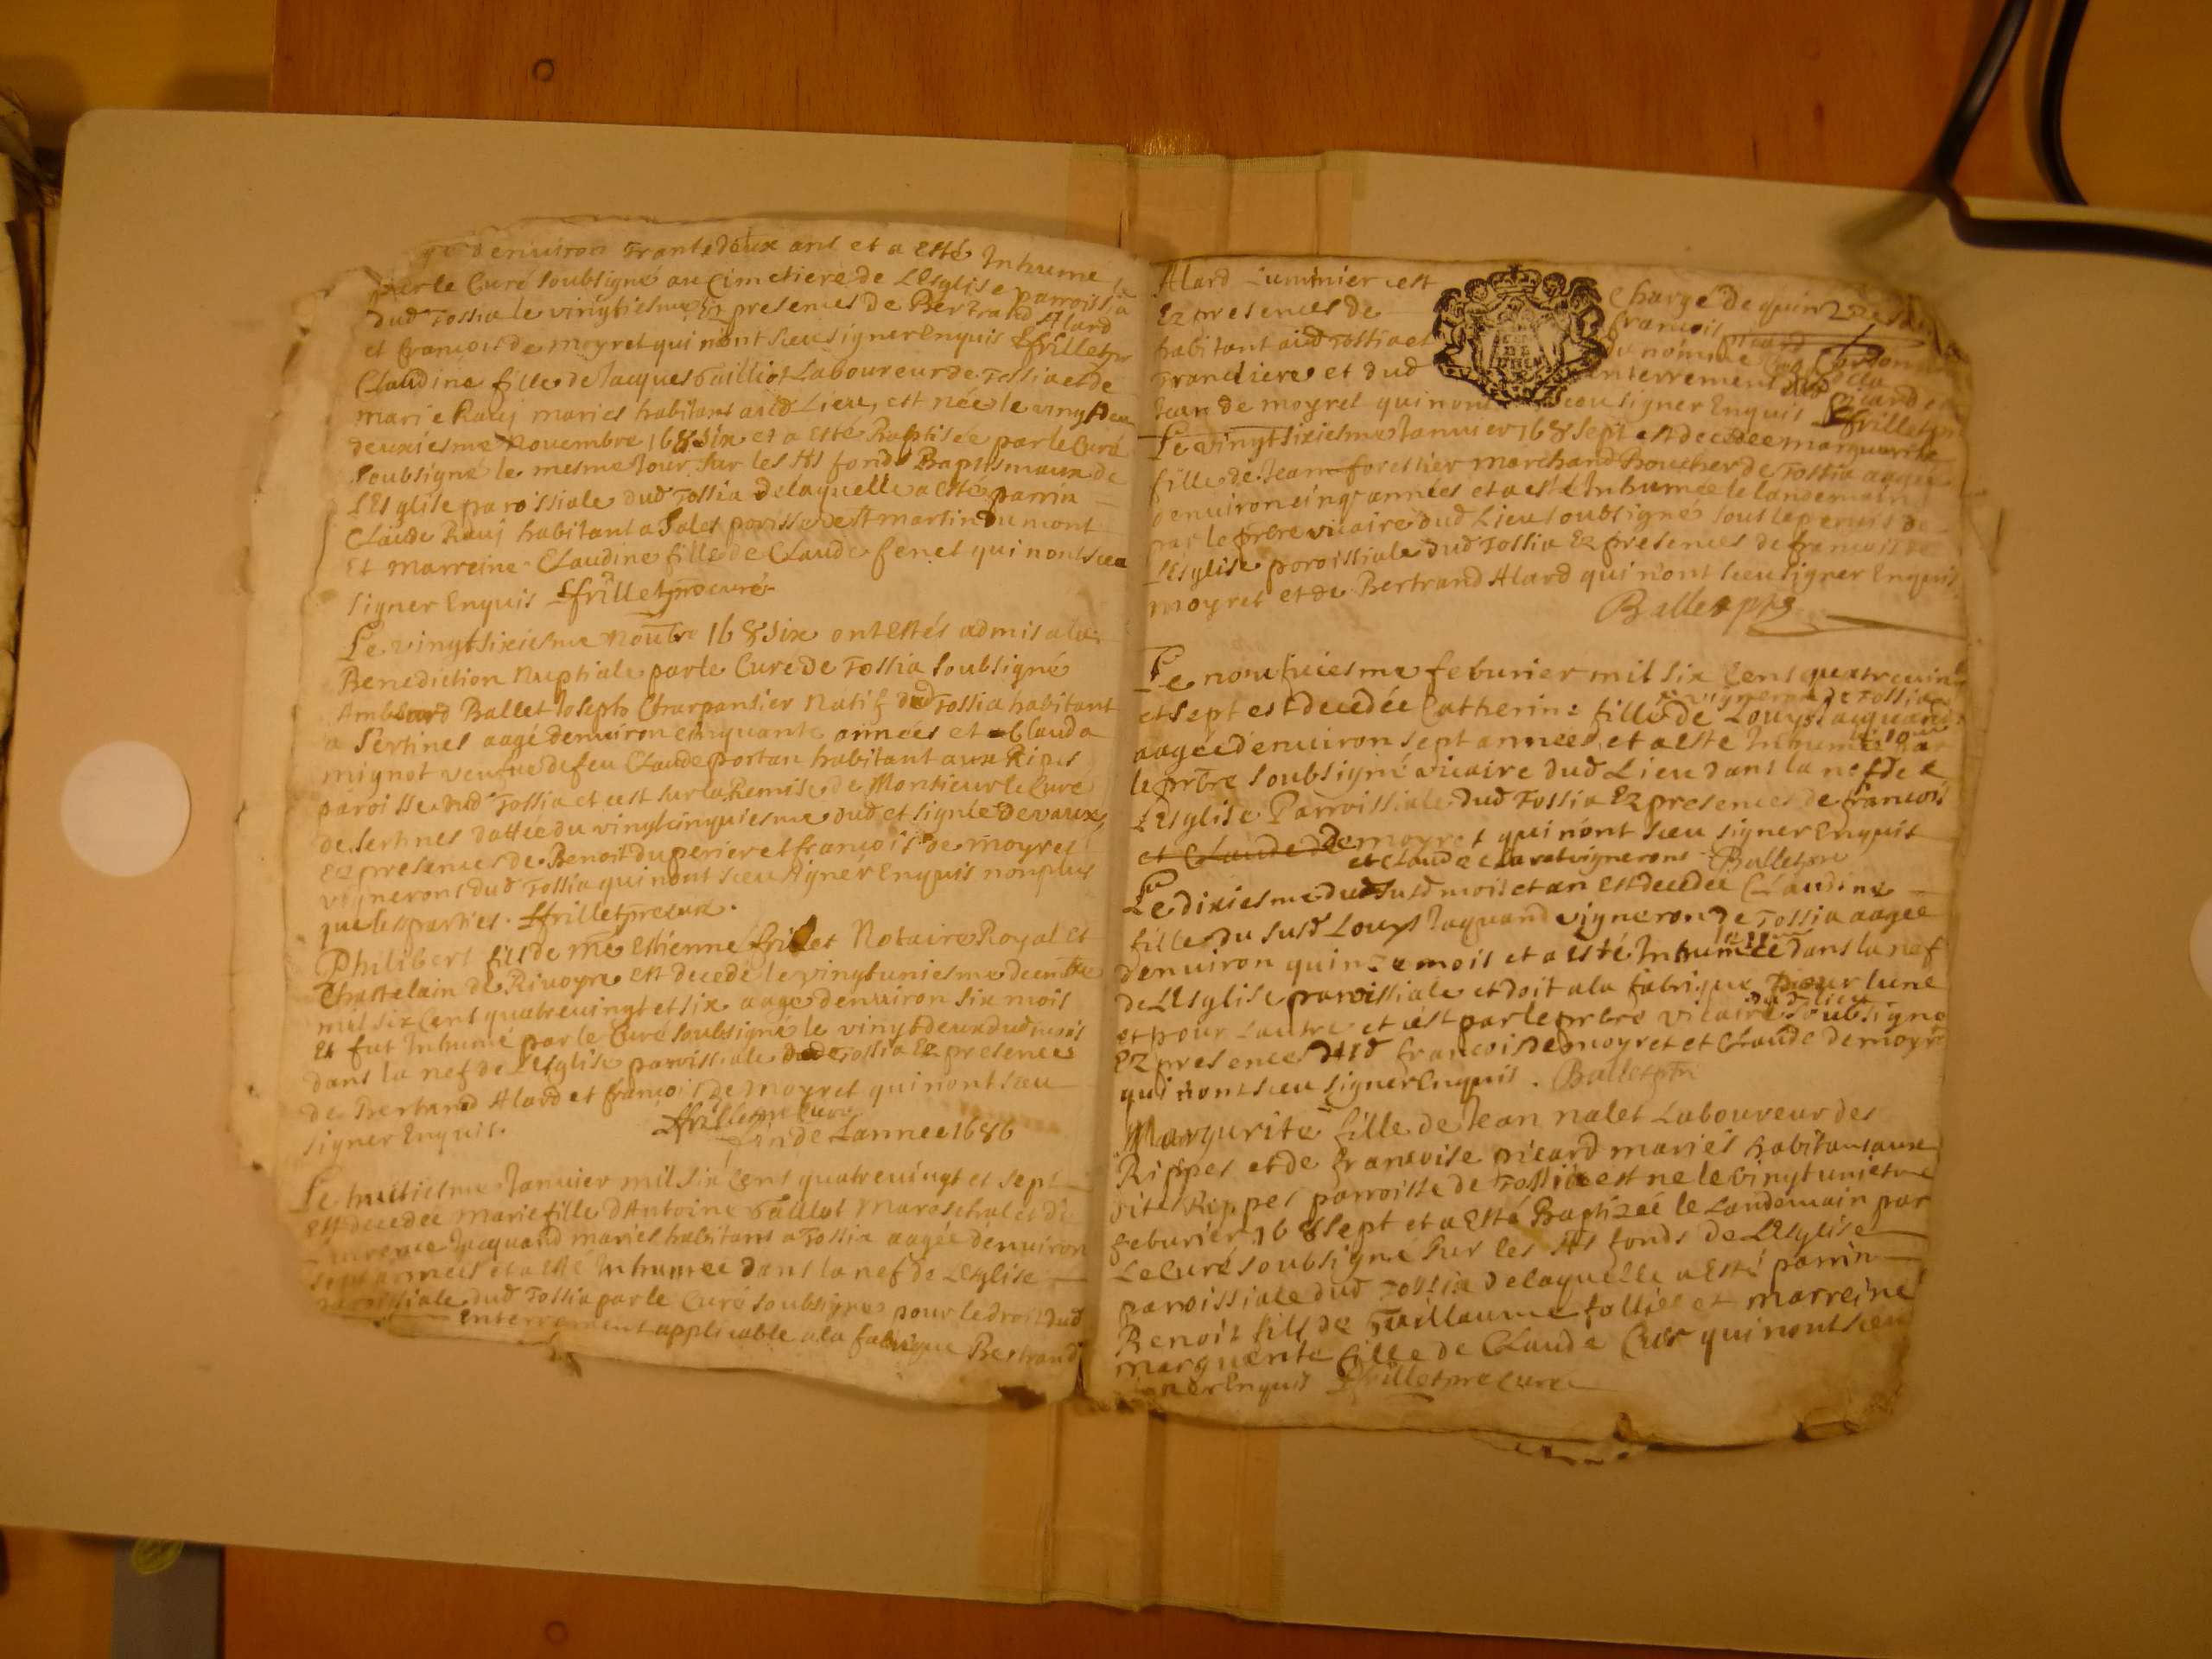 denuiron Trantedeux ans et a Esté Inhumé
par le Curé soubsigné au Cimetiere de LEsglise parroissia
dud Tossia le vingtiesme Ez presences de Bertrand Alard
et francois de moyret qui nont sceu signer Enquis ffrillet pr
Claudine fille de Jacques Gailliot Laboureur de Tossia et de
marie Ravj maries habitans aud Lieu, est née le vingt deu
deuxiesme Novembre 168 six et a Esté Baptisée par le Curé
soubsigné le mesme Jour sur les Sts fonds Baptismaux de
LEsglise paroissiale dud Tossia delaquelle a Esté parrin
Claude Ravj habitant a Sales paroisse de St martin du mont
Et marreine Claudine fille de Claude fenet qui nont sceu
signer Enquis ffrillet pre curé
Le vingtsixiesme Noubre 168 six ont Estés admis a la
Benediction Nuptiale par le Curé de Tossia soubsigné
Amblard Ballet Joseph Charpantier Natif dud Tossia habitant
a Sertines aagé denuiron cinquante années et Clauda
mignot veufue de feu Claude portan habitant aux Ripes
paroisse dud Tossia et cest sur la Remise de Monsieur le Curé
de sertines dattée du vingtcinquiesme dud et signée Devaux,
Ez presences de Benoit duperier et francois de moyret
vignerons dud Tossia qui nont sceu signer Enquis non plus
que les parties. ffrillet pre curé.
Philibert fils de me Estienne frillet Notaire Royal et
Chastelain de Rivoyre est decedé le vingtuniesme decembre
mil six Cent quatreuingt et six aagé denuiron six mois
Et fut Inhumé par le Curé soubsigné le vingtdeux dud mois
dans la nef de LEsglise paroissiale dud Tossia Ez presences
de Bertrand Alard et francois de moyret qui nont sceu
signer Enquis. ffrillet pre Curé
fin de Lannee 1686
Le huitiesme Januier mil six Cent quatreuingt et sept
est decedée marie fille dAntoine Gaillot Mareschal et de
Jacquand mariés habitans a Tossia aagée denuiron
sept années et a Esté Inhumée dans la nef de LEsglise
paroissiale dud Tossia par le Curé soubsigné pour le droit dud
Enterrement applicable a la fabrique Bertrand
Alard Luminier est
Chargé de quinze
Ez presences de
francois
habitant aud Tossia et
du nommé
Trandiere et dud
enterrement
Jean de moyret qui nont sceu signer Enquis ffrillet pr
Le vingtsixiesme Januier 168 sept est decedee marguerite
fille de Jean forestier marchand Boucher de Tossia aagée
denuiron cinq années et a esté Inhumée le landemain
par le prbre vicaire dud Lieu soubsigné sous le
LEsglise paroissiale dud Tossia Ez presences de francois de
moyret et de Bertrand Alard qui nont sceu signer Enquis
Ballet ptre
Le neufuiesme feburier mil six Cent quatreuin
vigneron de Tossia
et sept est decedée Catherine fille de Louys Jacquand
aagée denuiron sept années, et a esté Inhumée par
le prbre soubsigné vicaire dud Lieu dans la nef de
LEsglise Parroissiale dud Tossia Ez presences de francois
et Claude de moyret qui nont sceu signer Enquis
et Claude Claret vignerons Ballet pre
Le dixiesme dud susd mois et an est decedée Claudine
fille du susd Louys Jaquand vigneron de Tossia aagée
denuiron quinze mois et a esté Inhumée dans la nef
de LEsglise paroissiale et doit a la fabrique pour lune
dud lieu
et pour Lautre et cest par le prbre vicaire soubsigné
Ez presences dud francois de moyret et Claude de moyr
qui nont sceu signer Enquis. Ballet ptre
Margurite fille de Jean nalet Laboureur des
Rippes et de francoise picard mariés habitans aux
dites Rippes parroisse de Tossia est ne le vingtuniesme
feburier 168 sept et a Esté Baptizeé le Landemain par
Le Curé soubsigné sur les Sts fonds de LEsglise
paroissiale dud Tossia delaquelle a Esté parrin
Benoit fils de Guillaume folliet et marreine
marguerite fille de Claude qui nont sceu
signer Enquis ffrillet pre curé